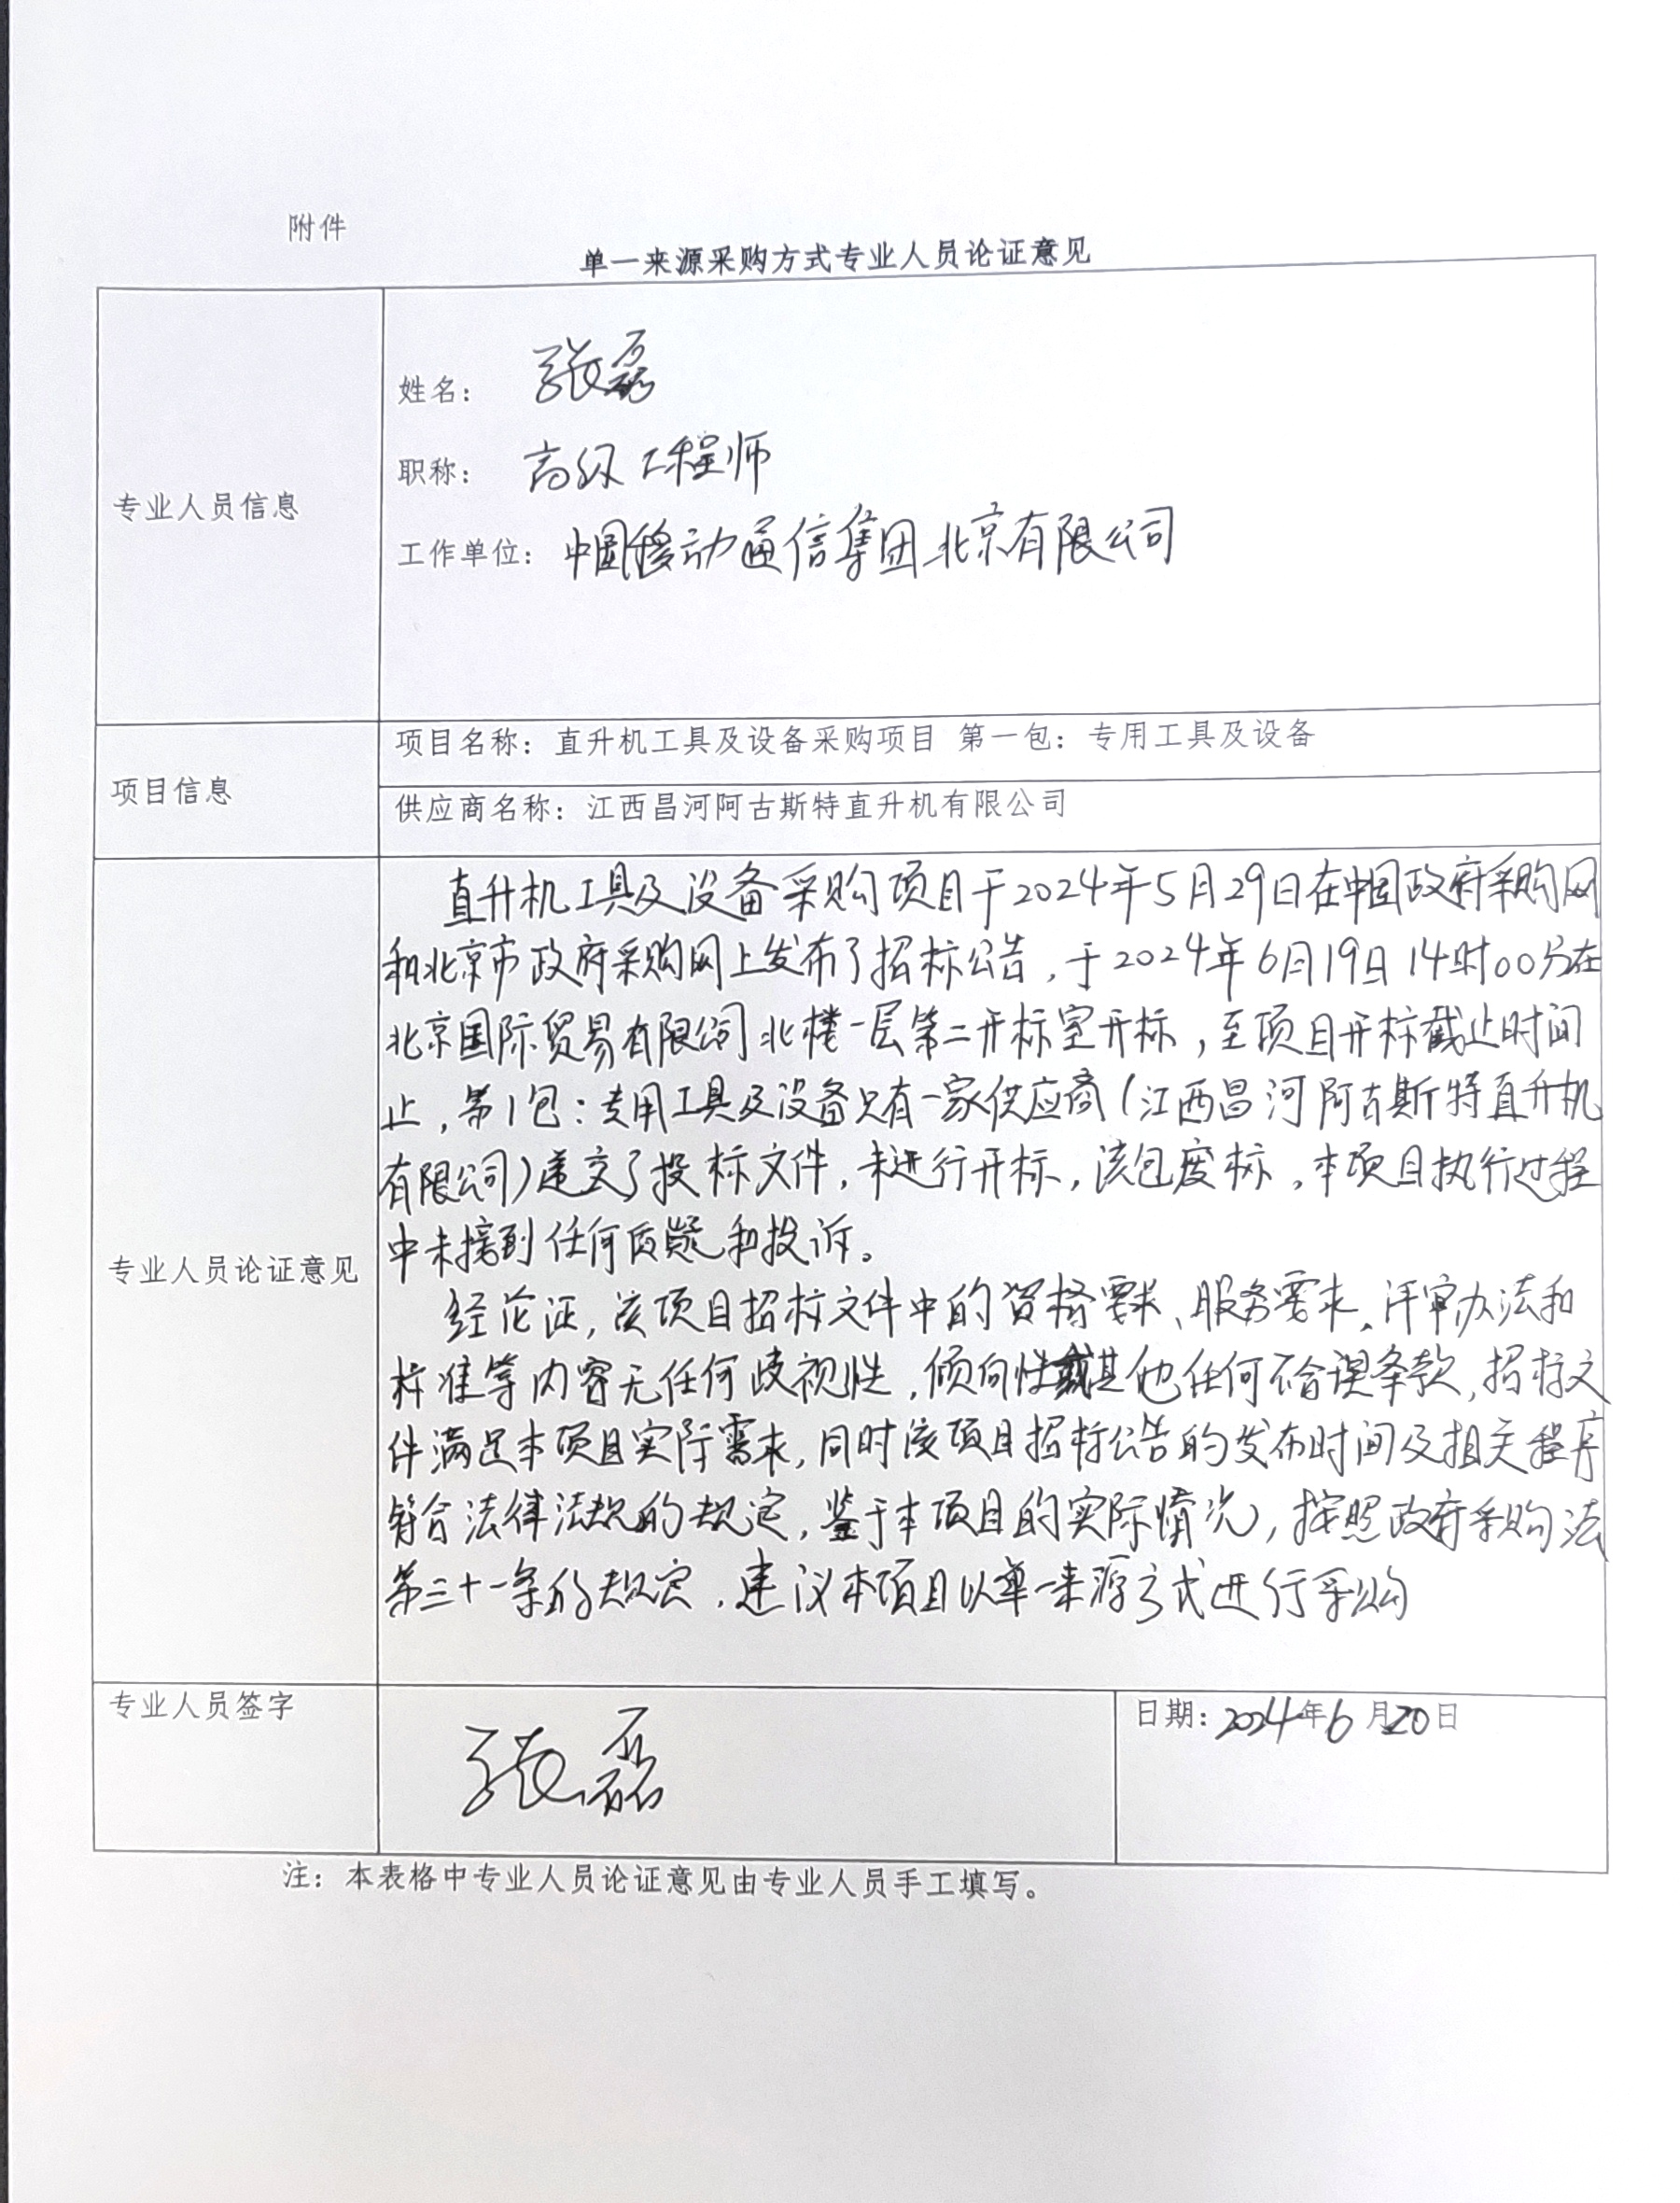 附件
单一来源采购方式专业人员论证意见
专业人员信息
姓名： 张磊
职称： 高级工程师
工作单位：中国移动通信集团北京有限公司
项目信息
项目名称：直升机工具及设备采购项目 第一包：专用工具及设备
供应商名称：江西昌河阿古斯特直升机有限公司
专业人员论证意见
直升机工具及设备采购项目于2024年5月29日在中国政府采购网
和北京市政府采购网上发布了招标公告，于2024年6月19日14时00分在
北京国际贸易有限公司北楼一层第二开标室开标，至项目开标截止时间
止，第1包：专用工具及设备只有一家供应商（江西昌河阿古斯特直升机
有限公司）递交了投标文件，未进行开标，该包废标。本项目执行过程
中未接到任何质疑和投诉。
经论证，该项目招标文件中的资格要求、服务需求、评审办法和
标准等内容无任何歧视性，倾向性或其他任何不合误条款，招标文
件满足本项目实际需求，同时该项目招标公告的发布时间及相关程序
符合法律法规的规定，鉴于本项目的实际情况，按照政府采购法
第三十一条的规定，建议本项目以单一来源方式进行采购
专业人员签字
张磊
日期：2024年6月20日
注：本表格中专业人员论证意见由专业人员手工填写。